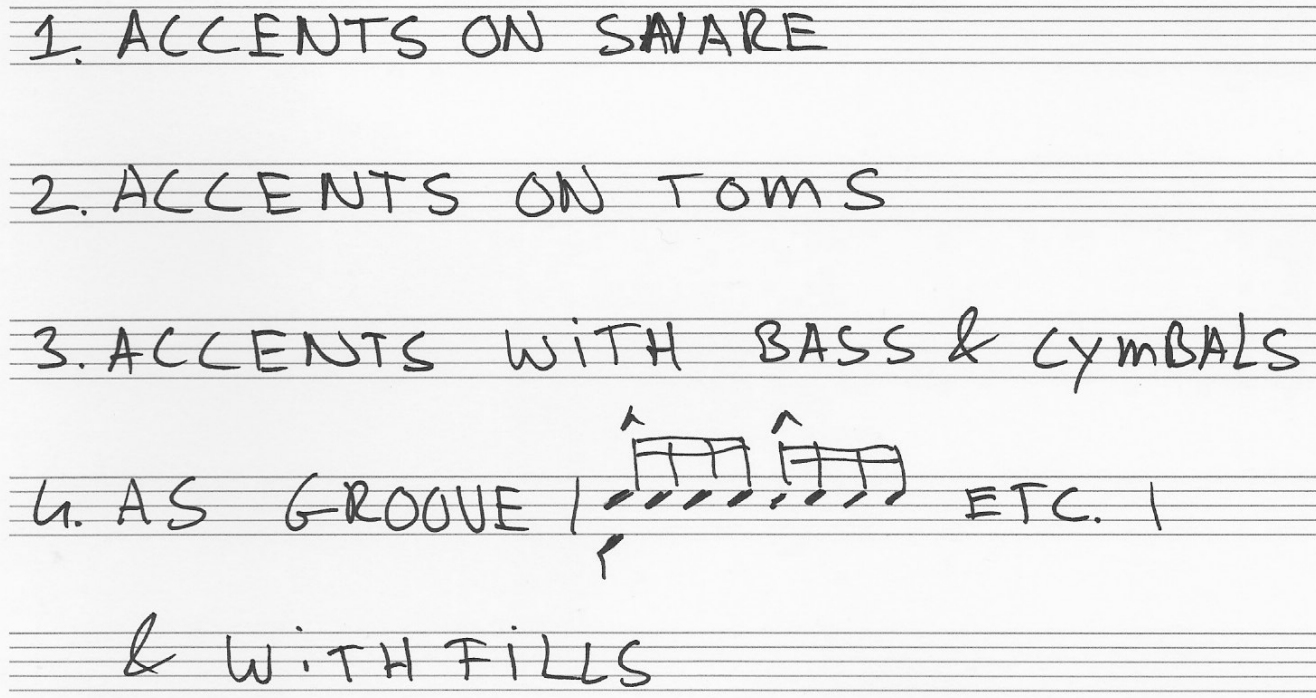 1. ACCENTS ON SNARE
2. ACCENTS ON TOMS
3. ACCENTS WiTH BASS & CYMBALS
4. AS GROOVE | ETC. |
& WiTH FiLLS